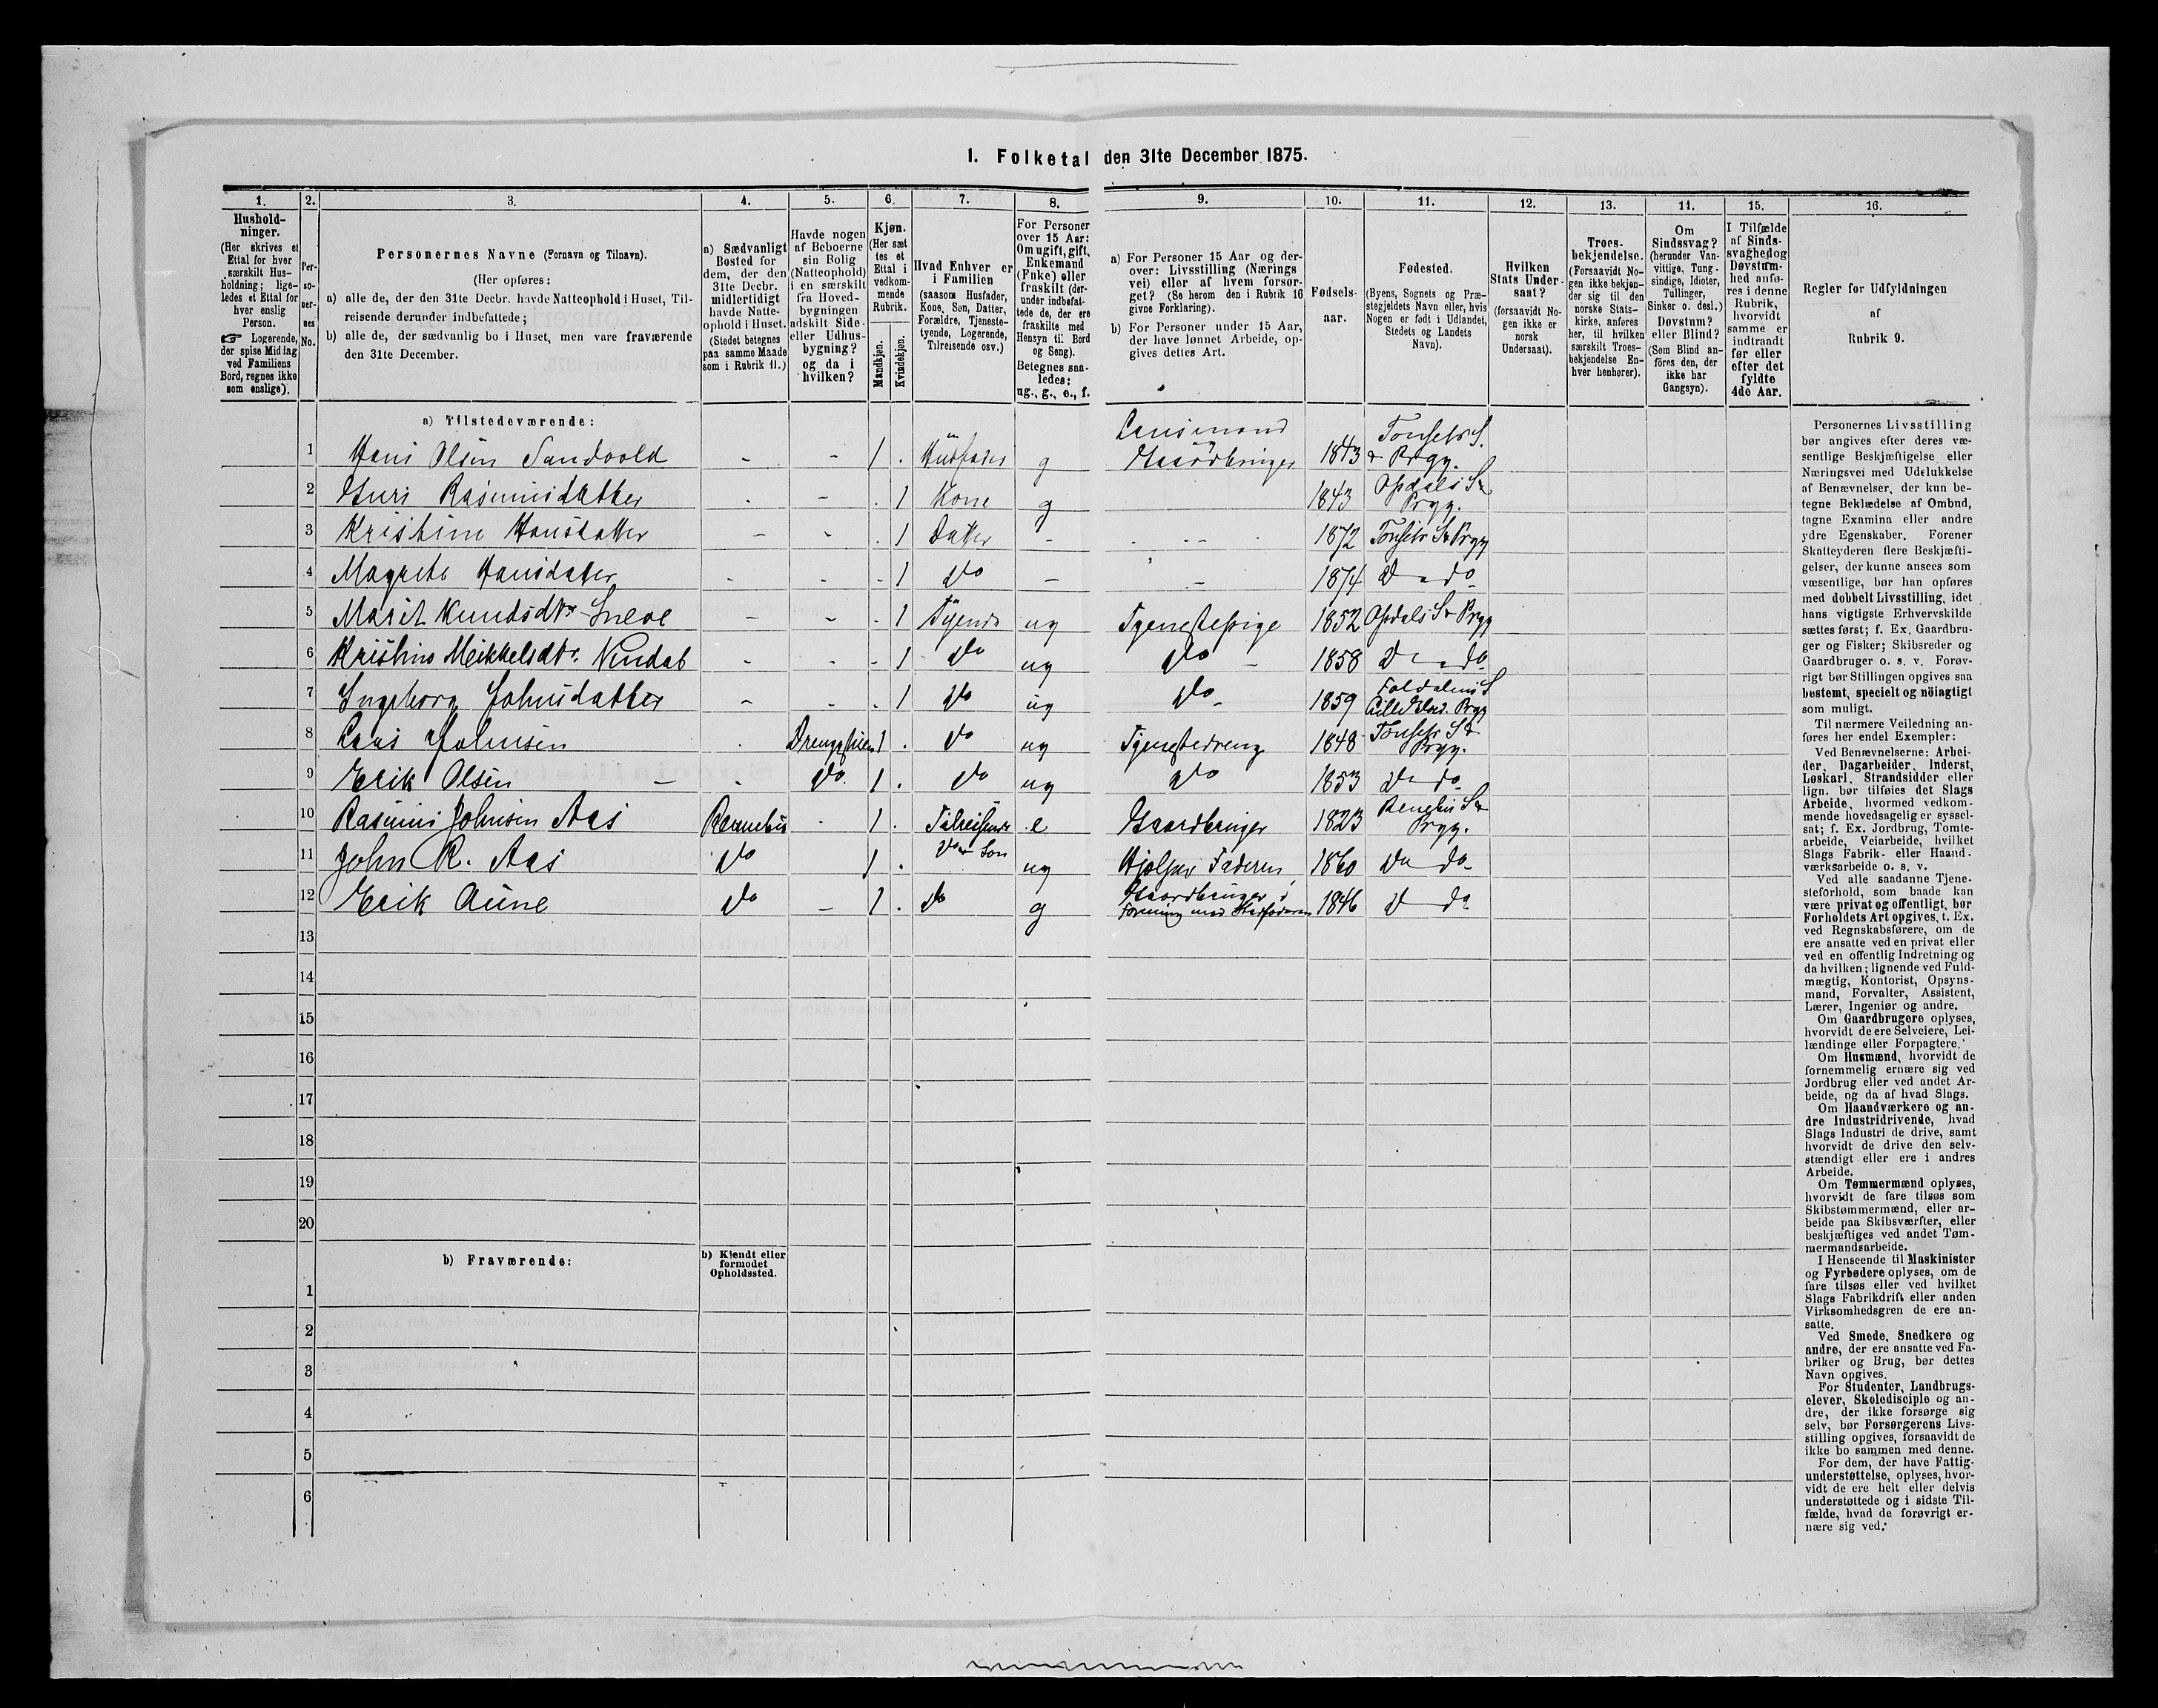 I. Folketal den 31te December 1875.
1. 2. 3. 4. 5. 6. 7. 8. 9. 10. 11. 12. 13. 14. 15. 16.
Hushold-
ninger.
(Her skrives et
Ettal for hver
særskilt Hus-
holdning; lige-
ledes et Ettal for
hver enslig
Person.
☞ Logerende,
der spise Middag
ved Familiens
Bord, regnes ikke
som enslige).
Per-
so-
ner-
nes
No.
Personernes Navne (Fornavn og Tilnavn).
(Her opføres:
a) alle de, der den 31te Decbr. havde Natteophold i Huset, Til-
reisende derunder indbefattede;
b) alle de, der sædvanlig bo i Huset, men vare fraværende
den 31te December.
a) Sædvanligt
Bosted for
dem, der den
31te Decbr.
midlertidigt
havde Natte-
ophold i Huset.
(Stedet betegnes
paa samme Maade
som i Rubrik 11.)
Havde nogen
af Beboerne
sin Bolig
(Natteophold)
i en særskilt
fra Hoved-
bygningen
adskilt Side-
eller Udhus-
bygning?
og da i
hvilken?
Kjøn.
(Her sæt
tes et
Ettal i
vedkom-
mende
Rubrik.
Mandkjøn.
Kvindekjøn.
Hvad Enhver er
i Familien
(saasom Husfader,
Kone, Søn, Datter,
Forældre, Tjeneste-
tyende, Logerende,
Tilreisende osv.)
For Personer
over 15 Aar:
Om ugift, gift,
Enkemand
(Enke) eller
fraskilt (der-
under indbefat-
tede de, der ere
fraskilte med
Hensyn til Bord
og Seng).
Betegnes saa-
ledes:
ug., g., e., f.
a) For Personer 15 Aar og der-
over: Livsstilling (Nærings
vei) eller af hvem forsør-
get? (Se herom den i Rubrik 16
givne Forklaring).
b) For Personer under 15 Aar,
der have lønnet Arbeide, op-
gives dettes Art.
Fødsels-
aar.
Fødested.
(Byens, Sognets og Præ-
stegjeldets Navn eller, hvis
Nogen er født i Udlandet,
Stedets og Landets
Navn).
Hvilken
Stats Under-
saat?
(forsaavidt No-
gen ikke er
norsk
Undersaat).
Troes-
bekjendelse.
(Forsaavidt No-
gen ikke bekjen-
der sig til den
norske Stats-
kirke, anføres
her, til hvilken
særskilt Troes-
bekjendelse En-
hver henhører).
Om
Sindssvag?
(herunder Van-
vittige, Tung-
sindige, Idioter,
Tullinger,
Sinker o. desl.)
Døvstum?
eller Blind?
(Som Blind an-
føres den, der
ikke har
Gangsyn).
I Tilfælde
af Sinds-
svaghed og
Døvstum-
hed anfø-
res i denne
Rubrik,
hvorvidt
samme er
indtraadt
før eller
efter det
fyldte
4de Aar.
Regler for Udfyldningen
af
Rubrik 9.
a) Tilstedeværende:
1 Hans Olsen Sandvold - - 1 . Husfader g Lensmand Gaardbruger 1843 Tønsets S. & Prgj.
2 Guri Rasmusdatter . - . 1 Kone g 1843 Opdals S & Prgj.
3 Kristine Hansdatter - - . 1 Datter - 1872 Tønsets S & Prgj
4 Magrete Hansdatter - - . 1 do - - 1874 D - do
5 Marit Knudsdtr Sneve - - . 1 Tyende ug Tjenestepige 1852 Opdals S & Prgj
6 Kristine Meikkelsdtr. - - . 1 do ug do - 1858 D - do
7 Ingeborg Johnsdatter - - . 1 do ug do - 1859 Foldalens S Lille Elvd. Prgj
8 Lars Johnsen . 1 . do ug Tjenestedreng 1848 Tønsets S & Prgj.
9 Erik Olsen - - do. 1 . do ug do 1853 D - do
10 Rasmus Johnsen Aas Rennebu - 1 . Tilreisende e Gaardbruger 1823 Rennebu S & Prgj.
11 John R. Aas do 1 . do Søn ug Hjelper Faderen 1860 Do do
12 Erik Aune do - 1 . do g Gaardbruger i Forening med 1846 D do
13
14
15
16
17
18
19
20
b) Fraværende:
b) Kjendt eller
formodet
Opholdssted.
1
2
3
4
5
6
Personernes Livsstilling
bør angives efter deres væ-
sentlige Beskjæftigelse eller
Næringsvei med Udelukkelse
af Benævnelser, der kun be-
tegne Beklædelse af Ombud,
tagne Examina eller andre
ydre Egenskaber. Forener
Skatteyderen flere Beskjæfti-
gelser, der kunne ansees som
væsentlige, bør han opføres
med dobbelt Livsstilling, idet
hans vigtigste Erhvervskilde
sættes først; f. Ex. Gaardbru-
ger og Fisker; Skibsreder og
Gaardbruger o. s. v. Forøv-
rigt bør Stillingen opgives saa
bestemt, specielt og nöiagtigt
som muligt.
Til nærmere Veiledning an-
føres her endel Exempler:
Ved Benævnelserne: Arbei-
der, Dagarbeider, Inderst,
Løskarl, Strandsidder eller
lign. bør tilføies det Slags
Arbeide, hvormed vedkom-
mende hovedsagelig er syssel-
sat; f. Ex. Jordbrug, Tomte-
arbeide, Veiarbeide, hvilket
Slags Fabrik- eller Haand-
værksarbeide o. s. v.
Ved alle saadanne Tjene-
steforhold, som baade kan
være privat og offentligt, bør
Forholdets Art opgives, t. Ex.
ved Regnskabsførere, om de
ere ansatte ved en privat eller
ved en offentlig Indretning og
da hvilken; lignende ved Fuld-
mægtig, Kontorist, Opsyns-
mand, Forvalter, Assistent,
Lærer, Ingeniør og andre.
Om Gaardbrugere oplyses,
hvorvidt de ere Selveiere, Lei-
lændinge eller Forpagtere.
Om Husmænd, hvorvidt de
fornemmelig ernære sig ved
Jordbrug eller ved andet Ar-
beide, og da af hvad Slags.
Om Haandværkere og an-
dre Industridrivende, hvad
Slags Industri de drive, samt
hvorvidt de drive den selv-
stændigt eller ere i andres
Arbeide.
Om Tømmermænd oplyses,
hvorvidt de fare tilsøs som
Skibstømmermænd, eller ar-
beide paa Skibsværfter, eller
beskjæftiges ved andet Tøm-
mermandsarbeide.
I Henseende til Maskinister
og Fyrbødere oplyses, om de
fare tilsøs eller ved hvilket
Slags Fabrikdrift eller anden
Virksomhedsgren de ere an-
satte.
Ved Smede, Snedkere og
andre, der ere ansatte ved Fa-
briker og Brug, bør dettes
Navn opgives.
For Studenter, Landbrugs-
elever, Skoledisciple og an-
dre, der ikke forsørge sig
selv, bør Forsørgerens Livs-
stilling opgives, forsaavidt de
ikke bo sammen med denne.
For dem, der have Fattig-
understøttelse, oplyses, hvor-
vidt de ere helt eller delvis
understøttede og i sidste Til-
fælde, hvad de forøvrigt er-
nære sig ved.